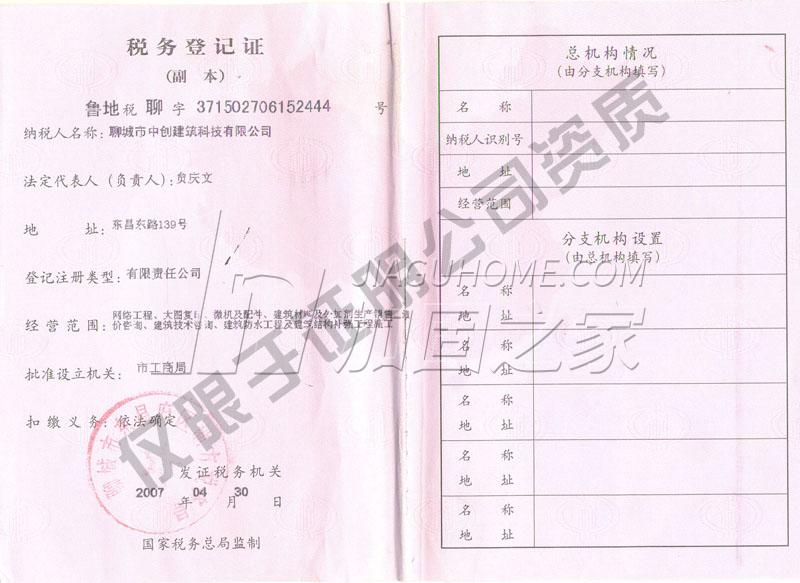 税务登记证
(副 本)
鲁地税 聊 字 371502706152444 号
纳税人名称: 聊城市中创建筑科技有限公司
法定代表人(负责人): 贠庆文
地 址: 东昌东路139号
登记注册类型: 有限责任公司
经营范围: 网络工程、大图复印、微机及配件、建筑材料及外加剂生产销售、造
价咨询、建筑技术咨询、建筑防水工程及建筑结构补强工程施工
批准设立机关: 市工商局
扣缴义务: 依法确定
发证税务机关
2007 年 04 月 30 日
国家税务总局监制
总机构情况
(由分支机构填写)
名 称
纳税人识别号
地 址
经营范围
分支机构设置
(由总机构填写)
名 称
地 址
名 称
地 址
名 称
地 址
名 称
地 址
名 称
地 址
仅限于证明公司资质
JIAGUHOME.COM
加固之家